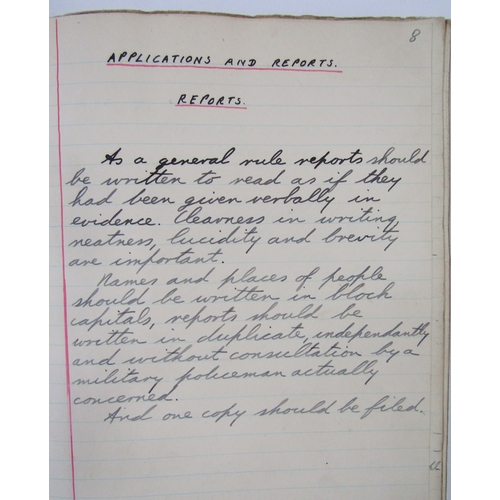 8
APPLICATIONS AND REPORTS.
REPORTS.
As a general rule reports should
be written to read as if they
had been given verbally in
evidence. Clearness in writing,
neatness, lucidity and brevity
are important.
Names and places of people
should be written in block
capitals, reports should be
written in duplicate, independantly
and without consultation by a
military policeman actually
concerned.
And one copy should be filed.